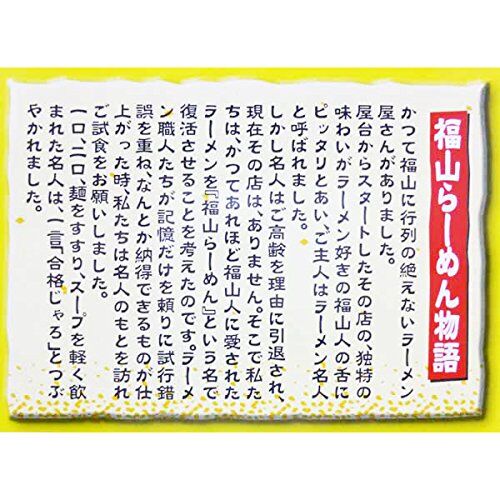 福山らーめん物語
かつて福山に行列の絶えないラーメン
屋さんがありました。
屋台からスタートしたその店の、独特の
味わいがラーメン好きの福山人の舌に
ピッタリとあい、ご主人はラーメン名人
と呼ばれました。
しかし名人はご高齢を理由に引退され、
現在その店は、ありません。そこで私た
ちは、かつてあれほど福山人に愛された
ラーメンを『福山らーめん』という名で
復活させることを考えたのです。ラーメ
ン職人たちが記憶だけを頼りに試行錯
誤を重ね、なんとか納得できるものが仕
上がった時、私たちは名人のもとを訪れ
ご試食をお願いしました。
一口、二口、麺をすすり、スープを軽く飲
まれた名人は、一言、「合格じゃろ」とつぶ
やかれました。